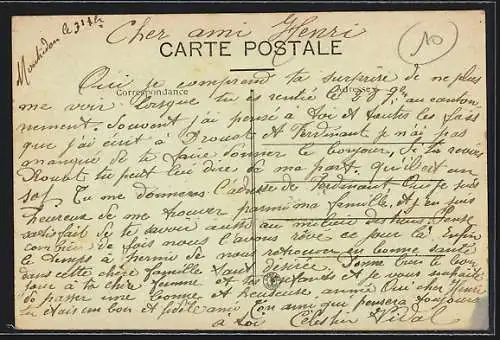 Cher ami Henri
le 3 1
10
CARTE POSTALE
Correspondance
Adresse
Oui je comprend ta surprise de ne plus
me voir lorsque tu es rentré le 28 au canton
nement. Souvent j'ai pensé à toi et toutes les fois
que j'ai écrit à Drouot et Ferdinant je n'ai pas
manqué de te faire donner le bonjour, Si tu revois
Drouot tu peut lui dire de ma part qu'il est un
sot, Tu me donneras l'adresse de Ferdinant. Oui je suis
heureux de me trouver parmi ma famille, et j'en suis
satisfait de te savoir aussi au milieu des tiens
combien de fois nous l'avons rêvé ce jour là. Enfin
le temps à permis de nous retrouver en bonne santé
dans cette chère famille tant désirée. Donne bien le bon
jour à ta chère femme et ta et je vous souhaite
de passer une bonne et heureuse année Oui cher Henri
Je suis un bon et fidèle ami, Ton ami que pensera toujours
à toi Célestin Vidal